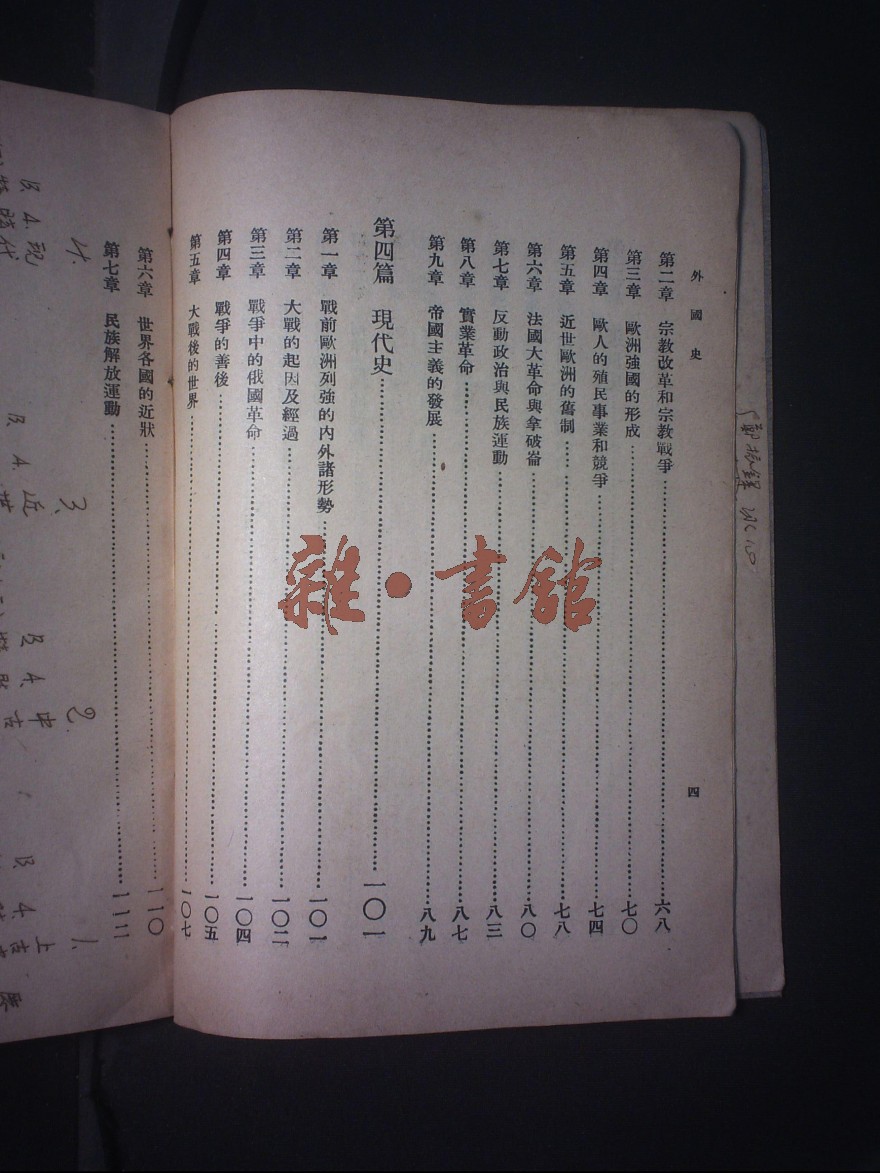 外國史
四
第二章　宗教改革和宗教戰爭……六八
第三章　歐洲強國的形成……七〇
第四章　歐人的殖民事業和競爭……七四
第五章　近世歐洲的舊制……七八
第六章　法國大革命與拿破崙……八〇
第七章　反動政治與民族運動……八三
第八章　實業革命……八七
第九章　帝國主義的發展……八九
第四篇　現代史……一〇一
第一章　戰前歐洲列強的內外諸形勢……一〇一
第二章　大戰的起因及經過……一〇二
第三章　戰爭中的俄國革命……一〇四
第四章　戰爭的善後……一〇五
第五章　大戰後的世界……一〇七
第六章　世界各國的近狀……一一〇
第七章　民族解放運動……一一二
雜·書館
4.
B. A.
3. 近世
B. A.
2. 中古
B. A.
1. 上古